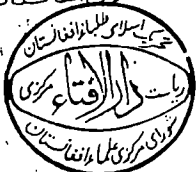 تحریک اسلامی طلباء افغانستان
ریاست دارالافتاء مرکزی
شورای مرکزی علماء افغانستان